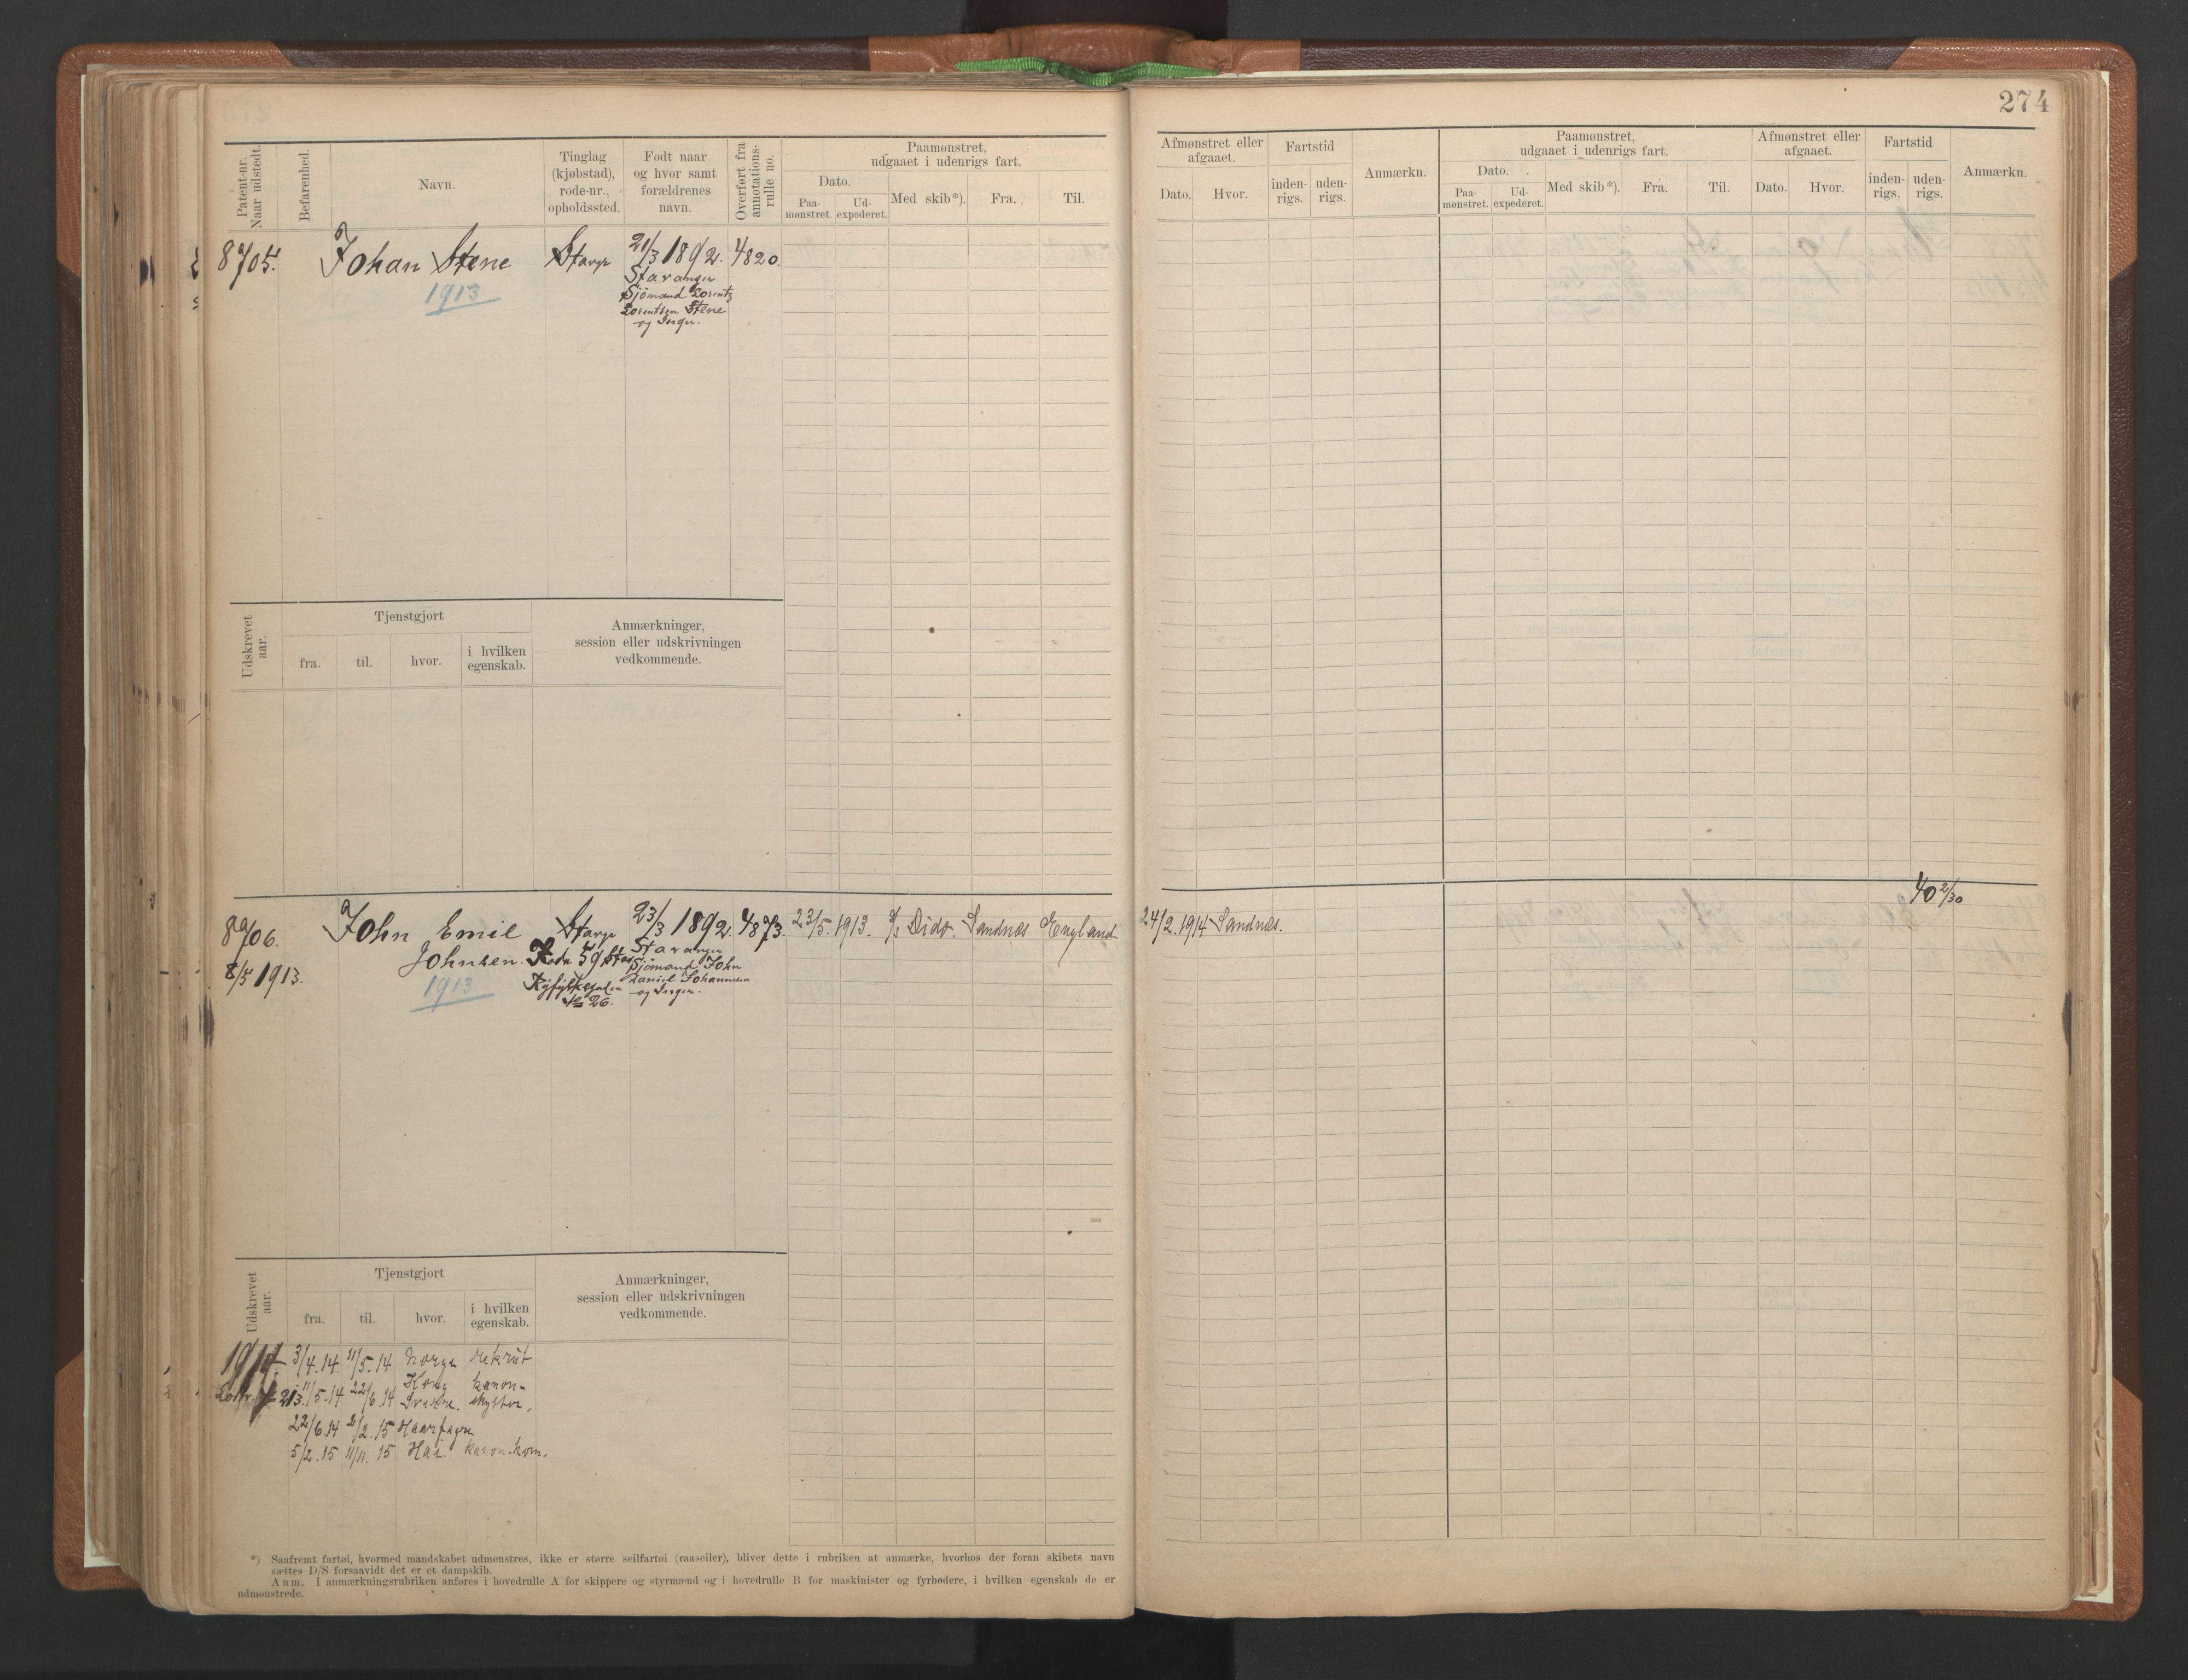 274
Patent-nr.
Naar udstedt.
Befarenhed.
Navn.
Tinglag
(kjøbstad),
rode-nr.,
opholdssted.
Født naar
og hvor samt
forældrenes
navn.
Overført fra
annotations-
rulle no.
Paamønstret,
udgaaet i udenrigs fart.
Dato.
Paa-
mønstret.
Ud-
expederet.
Med skib*).
Fra.
Til.
Afmønstret eller
afgaaet.
Dato.
Hvor.
Fartstid
inden-
rigs.
uden-
rigs.
Anmærkn.
Paamønstret,
udgaaet i udenrigs fart.
Dato.
Paa-
mønstret.
Ud-
expederet.
Med skib*).
Fra.
Til.
Afmønstret eller
afgaaet.
Dato.
Hvor.
Fartstid
inden-
rigs.
uden-
rigs.
Anmærkn.
8705.
Johan Stene
1913
Stavgr
21/3 1892.
Stavanger
Sjömand Lorentz
Lorentsen Stene
og Inger.
4820.
Udskrevet
aar.
Tjenstgjort
fra.
til.
hvor.
i hvilken
egenskab.
Anmærkninger,
session eller udskrivningen
vedkommende.
8706.
8/5 1913.
John Emil
Johnsen.
1913
Stavgr
Rode 59
Ryfylkegaden
No 26.
23/3 1892.
Stavanger
Sjömand John
Daniel Johannesen
og Inger.
4873.
23/5. 1913. s/s Dido. Sandnæs England
24/2. 1914 Sandnæs.
40 2/30
Udskrevet
aar.
Tjenstgjort
fra.
til.
hvor.
i hvilken
egenskab.
Anmærkninger,
session eller udskrivningen
vedkommende.
1914 3/4.14. 11/5.14 Norge rekrut
213. 11/5.14 22/6.14 Kong Sverre. kanon-
skytter.
22/6.14 2/2.15 Haarfagre
5/2.15 11/11.15 Hai. kanon.kom.
*) Saafremt fartøi, hvormed mandskabet udmønstres, ikke er større seilfartøi (raaseiler), bliver dette i rubriken at anmærke, hvorhos der foran skibets navn
sættes D/S forsaavidt det er et dampskib.
Anm. I anmærkningsrubriken anføres i hovedrulle A for skippere og styrmænd og i hovedrulle B for maskinister og fyrbødere, i hvilken egenskab de er
udmønstrede.